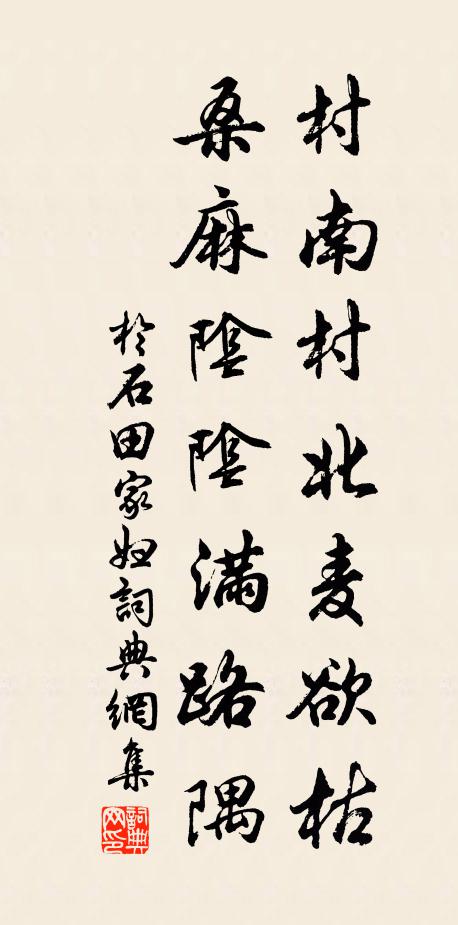 村南村北麦欲枯
桑麻陰陰满路隅
於石田家妇詞典網集
詞典网印